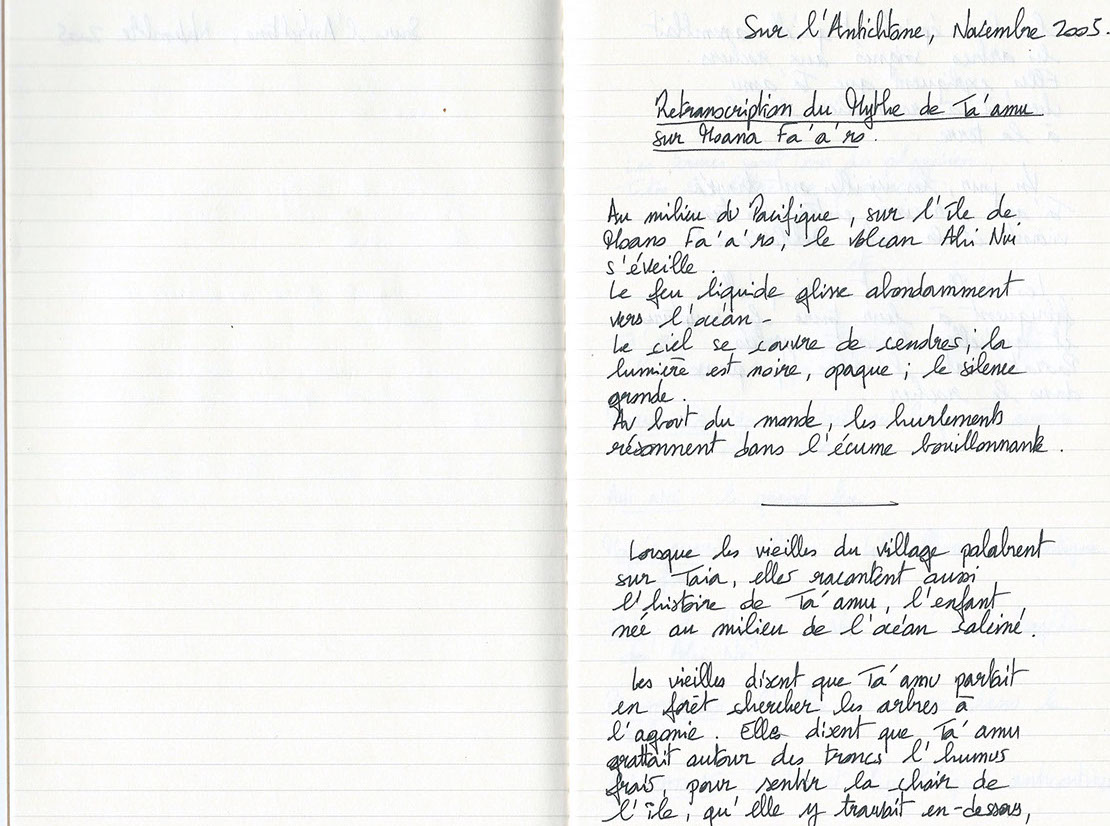 Sur l'Antichtone, Novembre 2005.
Retranscription du Mythe de Ta'amu
sur Moana Fa'a'ro.
Au milieu du Pacifique, sur l'île de
Moana Fa'a'ro, le volcan Ahi Nui
s'éveille.
Le feu liquide glisse abondamment
vers l'océan -
Le ciel se couvre de cendres ; la
lumière est noire, opaque ; le silence
gronde.
Au bout du monde, les hurlements
résonnent dans l'écume bouillonnante.
Lorsque les vieilles du village palabrent
sur Taia, elles racontent aussi
l'histoire de Ta'amu, l'enfant
née au milieu de l'océan calciné.
Les vieilles disent que Ta'amu partait
en forêt chercher les arbres à
l'agonie. Elles disent que Ta'amu
grattait autour des troncs l'humus
frais, pour sentir la chair de
l'île, qu'elle y trouvait en-dessous,